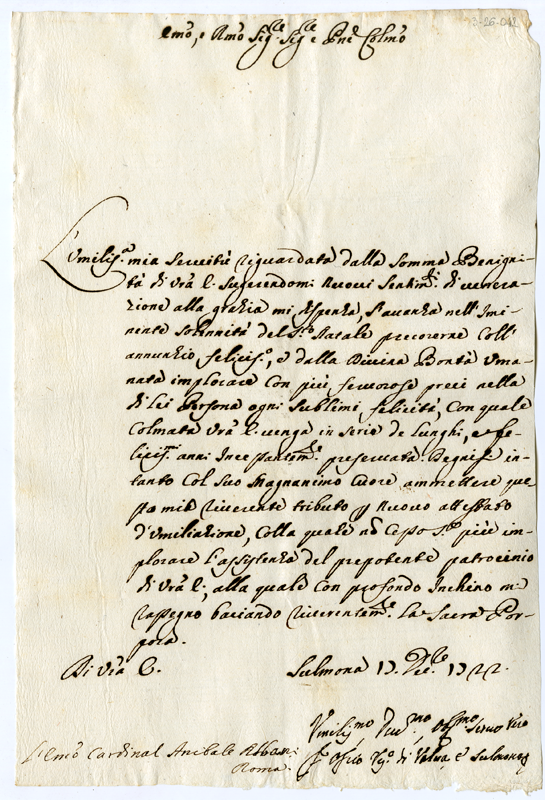 3-26-042
Emo, e Rmo Sigre Sigre e Pne Colmo
L'Umilisa mia Servitù riguardata dalla Somma Benigni-
tà di Vrã E. Sugerendomi nuovi Sentimti di venera-
zione alla grazia mi dispenza, s'avanza nell'Imi-
nente Solennità del Sto Natale precorerne Coll'
annunzio feliciso, e dalla Divina Bontà Uma-
nata implorare Con più fervorose preci nella
di Lei Persona ogni Sublimi felicità, Con quale
Colmata Vrã E. venga in Serie de Lunghi, e fe-
licisi anni Incessantemte preservata. Degnisi in-
tanto Col Suo Magnanimo Cuore ammettere que-
sto mio riverente tributo p nuovo attestato
d'Umiliazione, Colla quale nõ Cesso più im-
plorare L'assistenza del prepotente patrocinio
di Vrã E., alla quale Con profondo Inchino mi
rassegno baciando riverentemte La Sacra Por-
pora.
Di Vrã E. Sulmona 13. Xbre. 1722.
Umilismo Devmo, Obmo Servo Vero
Vo di Valva, e Sulmona
L'Emo Cardinal Anibale Albani
Roma.